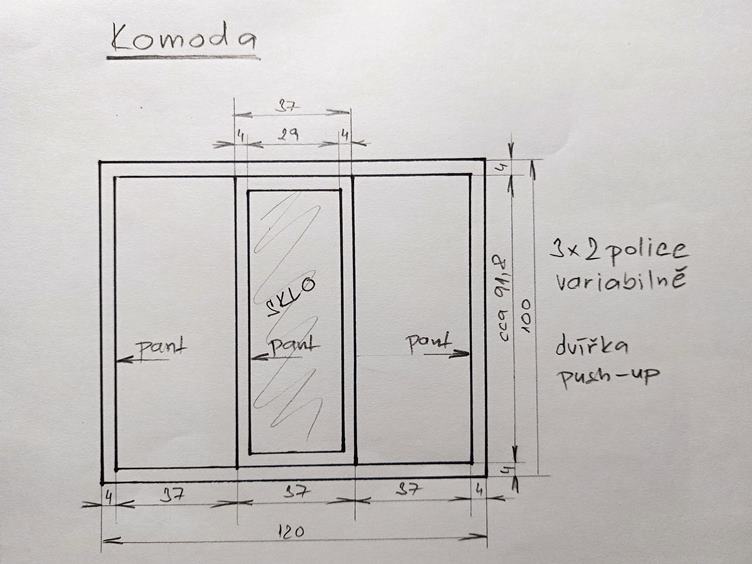 Komoda
37
4 29 4
4
3x2 police
variabilně
cca 91,8
100
SKLO
dvířka
push-up
pant pant pant
4
4 37 37 37 4
120